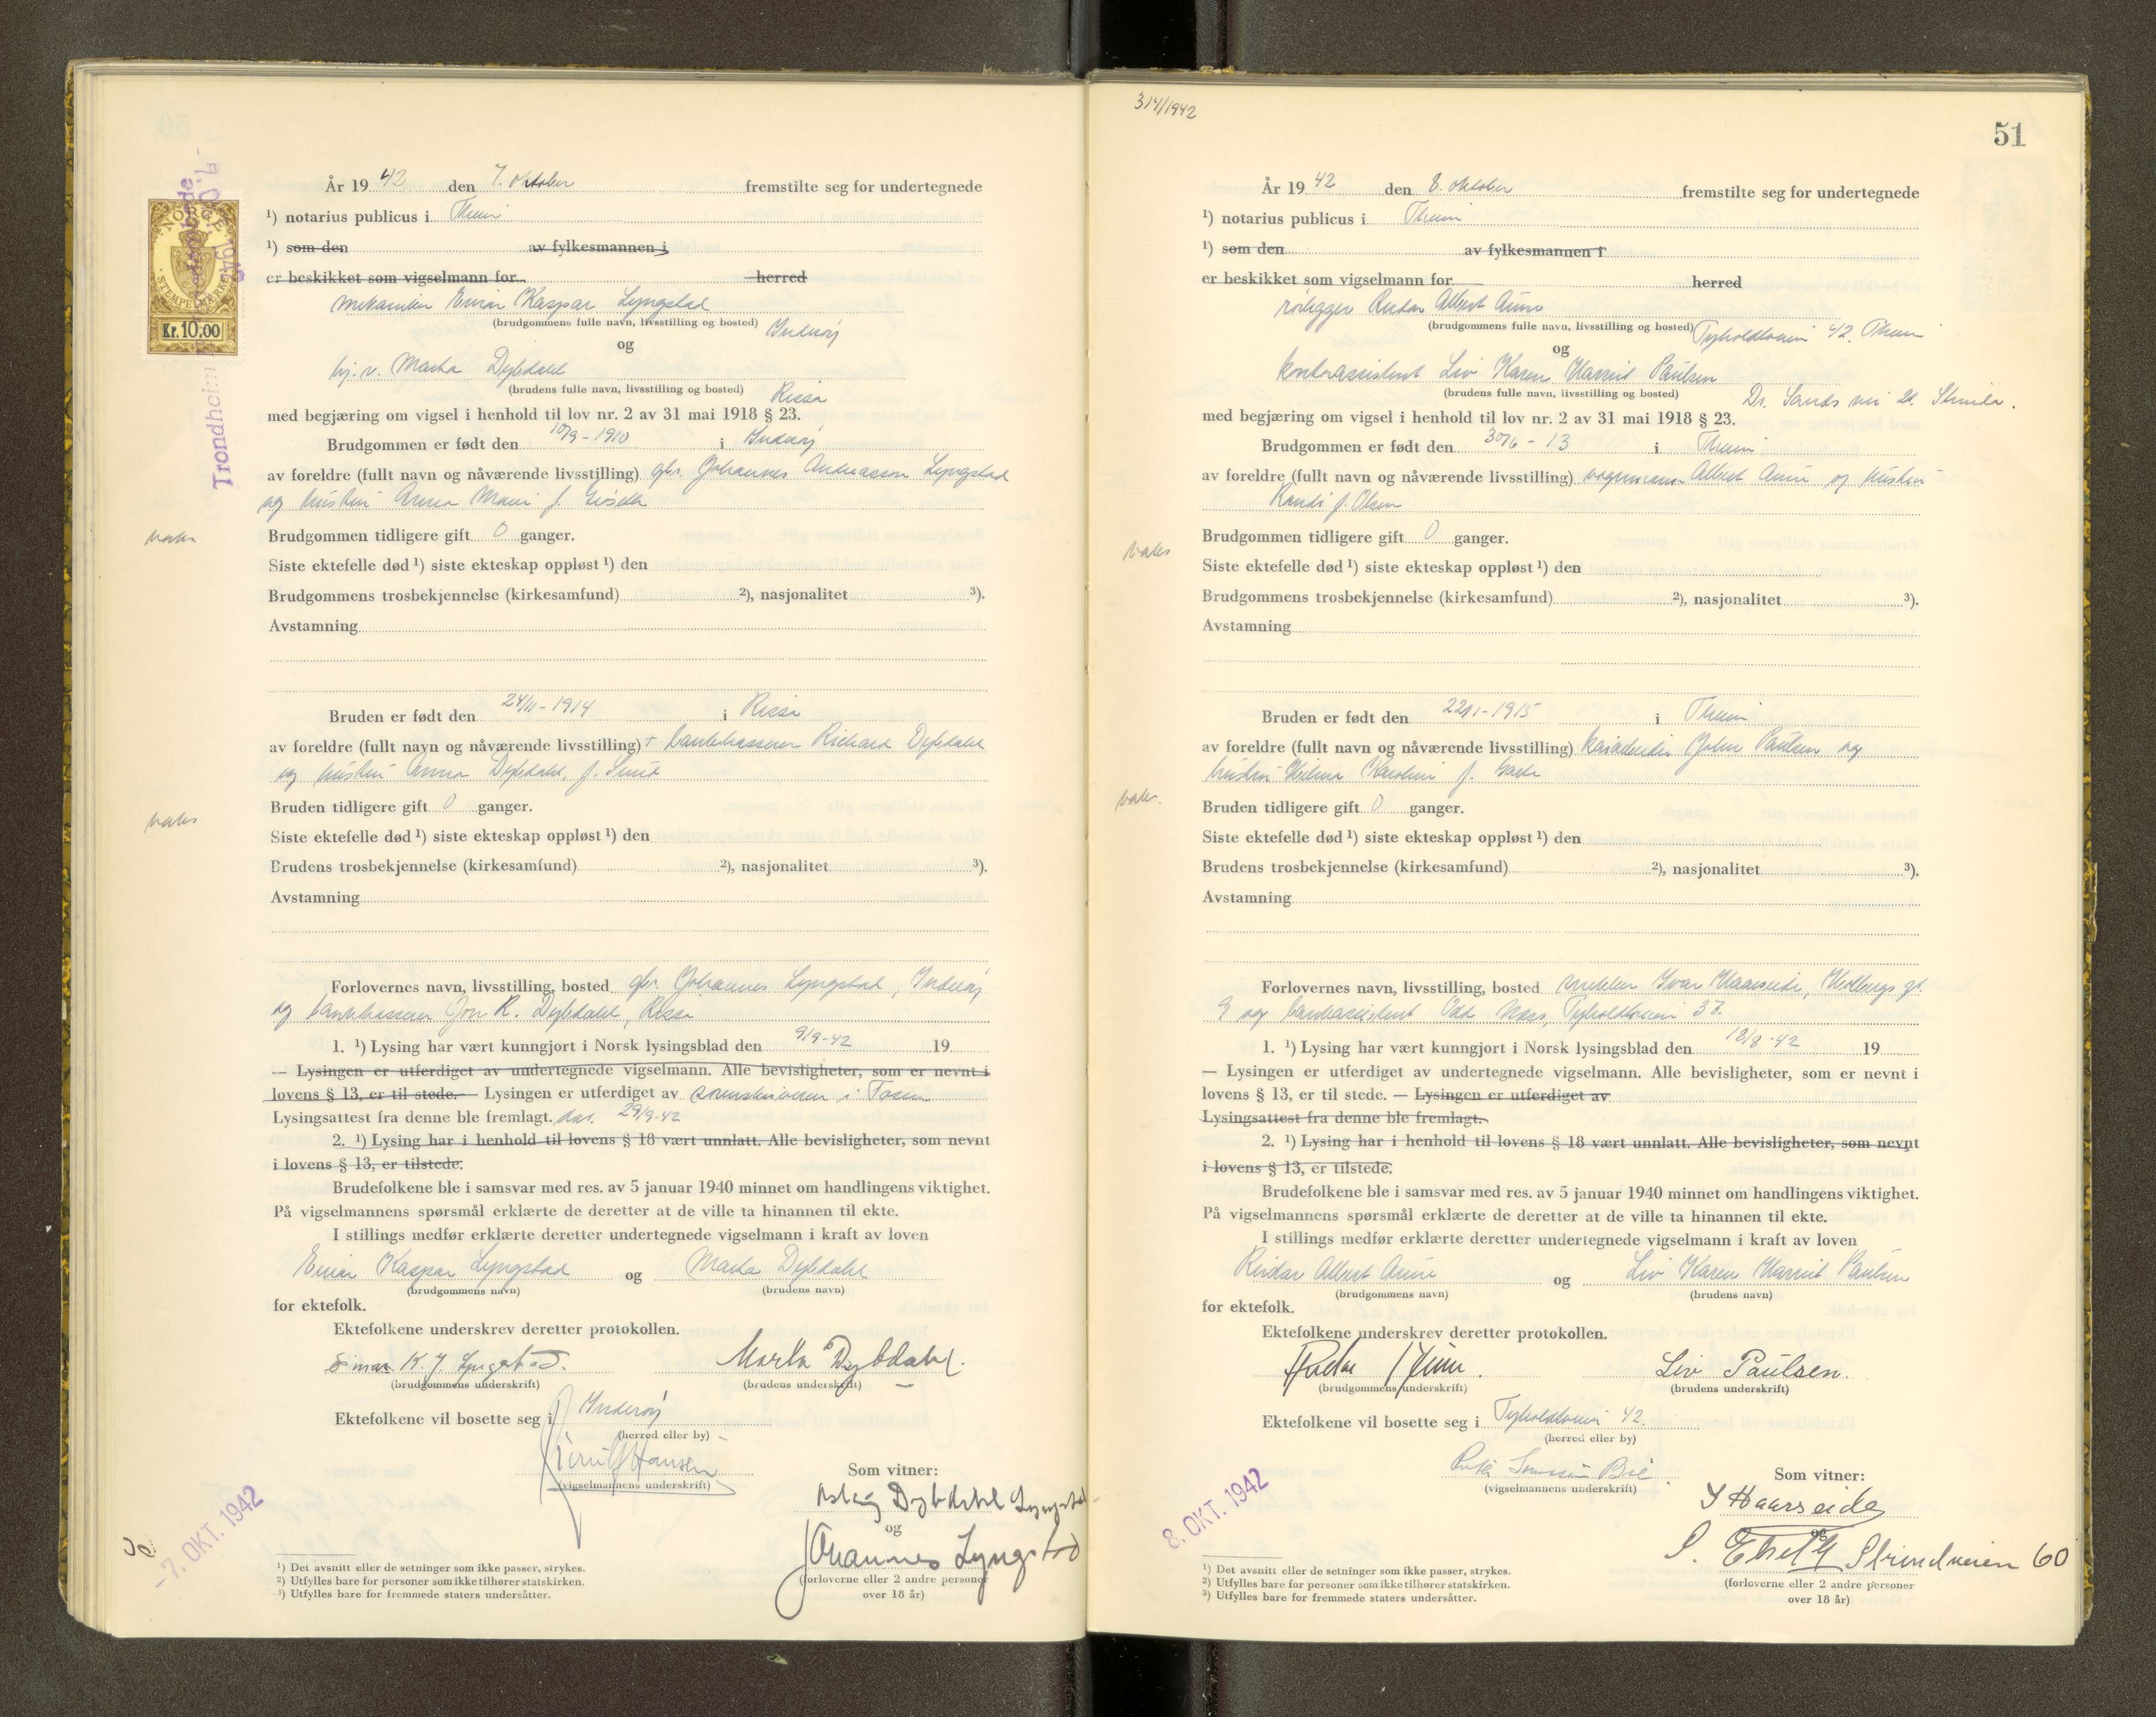 NORGE
STEMPELMERKE
Kr. 10,00
Trondheim
År 19 42 den 7. oktober fremstilte seg for undertegnede
¹) notarius publicus i Thm
¹) som den av fylkesmannen i
er beskikket som vigselmann for herred
mekaniker Einar Kaspar Lyngstad
(brudgommens fulle navn, livsstilling og bosted) Inderøy
og
hj.v. Marta Dybdahl
(brudens fulle navn, livsstilling og bosted) Rissa
med begjæring om vigsel i henhold til lov nr. 2 av 31 mai 1918 § 23.
Brudgommen er født den 10/9 - 1910 i Inderøy
av foreldre (fullt navn og nåværende livsstilling) gbr. Johannes Andreassen Lyngstad
og hustru Anna Marie f.
Brudgommen tidligere gift 0 ganger.
Siste ektefelle død ¹) siste ekteskap oppløst ¹) den
Brudgommens trosbekjennelse (kirkesamfund) ²), nasjonalitet ³).
Avstamning
vaks
Bruden er født den 24/11 - 1914 i Rissa
av foreldre (fullt navn og nåværende livsstilling) + bankkasserer Richard Dybdahl
og hustru Anna Dybdahl, f.
Bruden tidligere gift 0 ganger.
vaks
Siste ektefelle død ¹) siste ekteskap oppløst ¹) den
Brudens trosbekjennelse (kirkesamfund) ²), nasjonalitet ³).
Avstamning
Forlovernes navn, livsstilling, bosted gbr. Johannes Lyngstad, Inderøy
og bankkasserer Jon R. Dybdahl, Rissa
1. ¹) Lysing har vært kunngjort i Norsk lysingsblad den 9/9-42 19
— Lysingen er utferdiget av undertegnede vigselmann. Alle bevisligheter, som er nevnt i
lovens § 13, er til stede. — Lysingen er utferdiget av sorenskriveren i Fosen
Lysingsattest fra denne ble fremlagt. dat. 29/9-42
2. ¹) Lysing har i henhold til lovens § 18 vært unnlatt. Alle bevisligheter, som nevnt
i lovens § 13, er tilstede.
Brudefolkene ble i samsvar med res. av 5 januar 1940 minnet om handlingens viktighet.
På vigselmannens spørsmål erklærte de deretter at de ville ta hinannen til ekte.
I stillings medfør erklærte deretter undertegnede vigselmann i kraft av loven
Einar Kaspar Lyngstad og Marta Dybdahl
(brudgommens navn) (brudens navn)
for ektefolk.
Ektefolkene underskrev deretter protokollen.
Einar K. J. Lyngstad. Marta Dybdahl.
(brudgommens underskrift) (brudens underskrift)
Ektefolkene vil bosette seg i Inderøy
(herred eller by)
Hansen
(vigselmannens underskrift)
Som vitner:
Dybdahl Lyngstad
og
Johannes Lyngstad
(forloverne eller 2 andre personer
over 18 år)
-7. OKT. 1942
¹) Det avsnitt eller de setninger som ikke passer, strykes.
²) Utfylles bare for personer som ikke tilhører statskirken.
³) Utfylles bare for fremmede staters undersåtter.
314/1942
51
År 19 42 den 8. oktober fremstilte seg for undertegnede
¹) notarius publicus i Thm
¹) som den av fylkesmannen i
er beskikket som vigselmann for herred
rørlegger Reidar Albert Aune
(brudgommens fulle navn, livsstilling og bosted) Tyholdtveien 42. Thm
og
kontorassistent Liv Karen Harriet Paulsen
(brudens fulle navn, livsstilling og bosted) Dr. Sands vei 21. Strinda.
med begjæring om vigsel i henhold til lov nr. 2 av 31 mai 1918 § 23.
Brudgommen er født den 30/6 - 13 i Thm
av foreldre (fullt navn og nåværende livsstilling) vognmann Albert Aune og hustru
Randi f. Olsen
Brudgommen tidligere gift 0 ganger.
vaks
Siste ektefelle død ¹) siste ekteskap oppløst ¹) den
Brudgommens trosbekjennelse (kirkesamfund) ²), nasjonalitet ³).
Avstamning
Bruden er født den 22/1 - 1915 i Thm
av foreldre (fullt navn og nåværende livsstilling) kaiarbeider John Paulsen og
hustru Helma Karoline f.
vaks.
Bruden tidligere gift 0 ganger.
Siste ektefelle død ¹) siste ekteskap oppløst ¹) den
Brudens trosbekjennelse (kirkesamfund) ²), nasjonalitet ³).
Avstamning
Forlovernes navn, livsstilling, bosted snekker Ivar Haarseide, Wedbergs gt.
9 og bankassistent Odd Næss, Tyholdtveien 37.
1. ¹) Lysing har vært kunngjort i Norsk lysingsblad den 18/8-42 19
— Lysingen er utferdiget av undertegnede vigselmann. Alle bevisligheter, som er nevnt i
lovens § 13, er til stede. — Lysingen er utferdiget av
Lysingsattest fra denne ble fremlagt.
2. ¹) Lysing har i henhold til lovens § 18 vært unnlatt. Alle bevisligheter, som nevnt
i lovens § 13, er tilstede.
Brudefolkene ble i samsvar med res. av 5 januar 1940 minnet om handlingens viktighet.
På vigselmannens spørsmål erklærte de deretter at de ville ta hinannen til ekte.
I stillings medfør erklærte deretter undertegnede vigselmann i kraft av loven
Reidar Albert Aune og Liv Karen Harriet Paulsen
(brudgommens navn) (brudens navn)
for ektefolk.
Ektefolkene underskrev deretter protokollen.
Reidar Aune. Liv Paulsen.
(brudgommens underskrift) (brudens underskrift)
Ektefolkene vil bosette seg i Tyholdtveien 42.
(herred eller by)
(vigselmannens underskrift)
Som vitner:
I Haarseide
Strindveien 60
(forloverne eller 2 andre personer
over 18 år)
8. OKT. 1942
¹) Det avsnitt eller de setninger som ikke passer, strykes.
²) Utfylles bare for personer som ikke tilhører statskirken.
³) Utfylles bare for fremmede staters undersåtter.